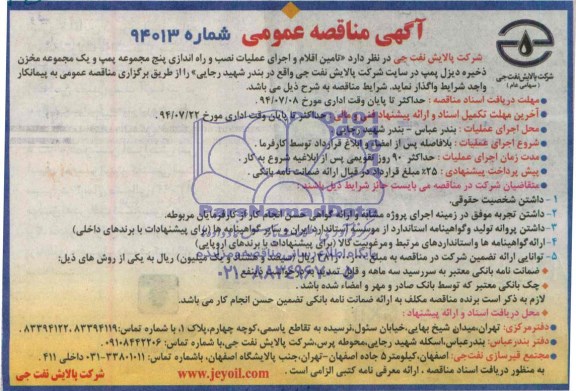 آگهی مناقصه عمومی شماره ۹۴۰۱۳
شرکت پالایش نفت جی
( سهامی عام )
شرکت پالایش نفت جی در نظر دارد «تامین اقلام و اجرای عملیات نصب و راه اندازی پنج مجموعه پمپ و یک مجموعه مخزن
ذخیره دیزل پمپ در سایت شرکت پالایش نفت جی واقع در بندر شهید رجایی» را از طریق برگزاری مناقصه عمومی به پیمانکار
واجد شرایط واگذار نماید. شرایط مناقصه به شرح ذیل می باشد.
مهلت دریافت اسناد مناقصه : حداکثر تا پایان وقت اداری مورخ ۹۴/۰۷/۰۸
آخرین مهلت تکمیل اسناد و ارائه پیشنهاد فنی و مالی : حداکثر تا پایان وقت اداری مورخ ۹۴/۰۷/۲۲.
محل اجرای عملیات : بندر عباس - بندر شهید رجایی
شروع اجرای عملیات : بلافاصله پس از امضاء و ابلاغ قرارداد توسط کارفرما .
مدت زمان اجرای عملیات : حداکثر ۹۰ روز تقویمی پس از ابلاغیه شروع به کار .
پیش پرداخت پیشنهادی : ۲۵٪ مبلغ قرارداد در قبال ارائه ضمانت نامه بانکی .
متقاضیان شرکت در مناقصه می بایست حائز شرایط ذیل باشند :
۱ - داشتن شخصیت حقوقی.
۲- داشتن تجربه موفق در زمینه اجرای پروژه مشابه و ارائه گواهی حسن انجام کار از کارفرمایان مربوطه.
۳- داشتن پروانه تولید و گواهینامه استاندارد از موسسه استاندارد ایران و سایر گواهینامه ها (برای پیشنهادات با برندهای داخلی)
۴- ارائه گواهینامه ها و استانداردهای مرتبط و مرغوبیت کالا (برای پیشنهادات با برندهای اروپایی)
۵- توانایی ارائه تضمین شرکت در مناقصه به مبلغ ریال (سیصد و یک میلیون) ریال به یکی از روش های ذیل:
ضمانت نامه بانکی معتبر به سررسید سه ماهه و قابل تمدید
چک بانکی معتبر که توسط بانک صادر و مهر و امضاء شده باشد .
لازم به ذکر است برنده مناقصه مکلف به ارائه ضمانت نامه بانکی تضمین حسن انجام کار می باشد.
محل دریافت اسناد و ارائه پیشنهاد :
دفترمرکزی: تهران،میدان شیخ بهایی،خیابان سئول،نرسیده به تقاطع یاسمی،کوچه چهارم،پلاک۱، با شماره تماس:۸۳۳۹۴۱۱۹ ،۸۳۳۹۴۱۲۲ .
دفتر بندرعباس: بندرعباس،اسکله شهید رجایی،محوطه پرس،شرکت پالایش نفت جی،با شماره تماس: ۰۹۱۰۸۴۴۲۲۰۶.
مجتمع قیرسازی نفت جی: اصفهان،کیلومتر۵ جاده اصفهان-تهران،جنب پالایشگاه اصفهان، باشماره تماس: ۳۳۸۰۱۰۱۱-۰۳۱ داخلی ۴۱۱ .
به منظور دریافت اسناد مناقصه ، ارائه معرفی نامه کتبی الزامی است .
www.jeyoil.com
شرکت پالایش نفت جی